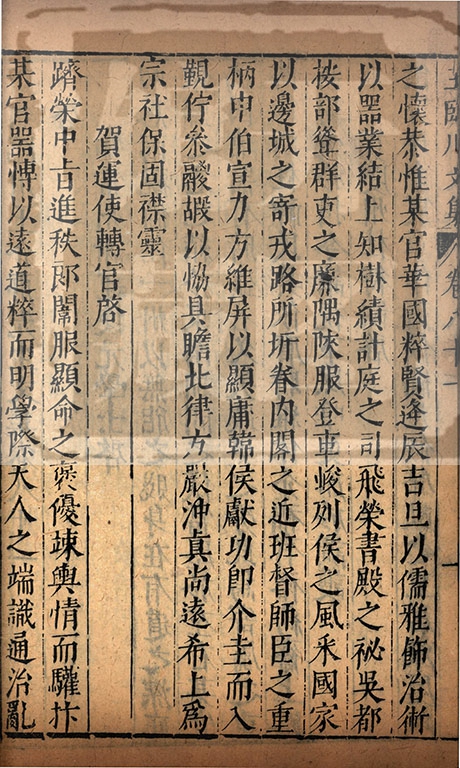 王臨川文集 卷八十一 一
之懷恭惟某官華國粹賢逢辰吉旦以儒雅飾治術
以器業結上知樹績計庭之司飛榮書殿之祕吳都
按部聳群吏之廉隅陜服登車峻列侯之風釆國家
以邊城之寄戎路所圻眷內閣之近班督師臣之重
柄申伯宣力方維屏以顯庸韓侯獻功即介圭而入
覲佇參嘏以恊具瞻北律方嚴沖真尚遠希上爲
宗社保固襟靈
賀運使轉官啓
躋榮中旨進秩郎闈服顯命之褒優竦輿情而驩抃
某官器博以遠道粹而明學際天人之端識通治亂